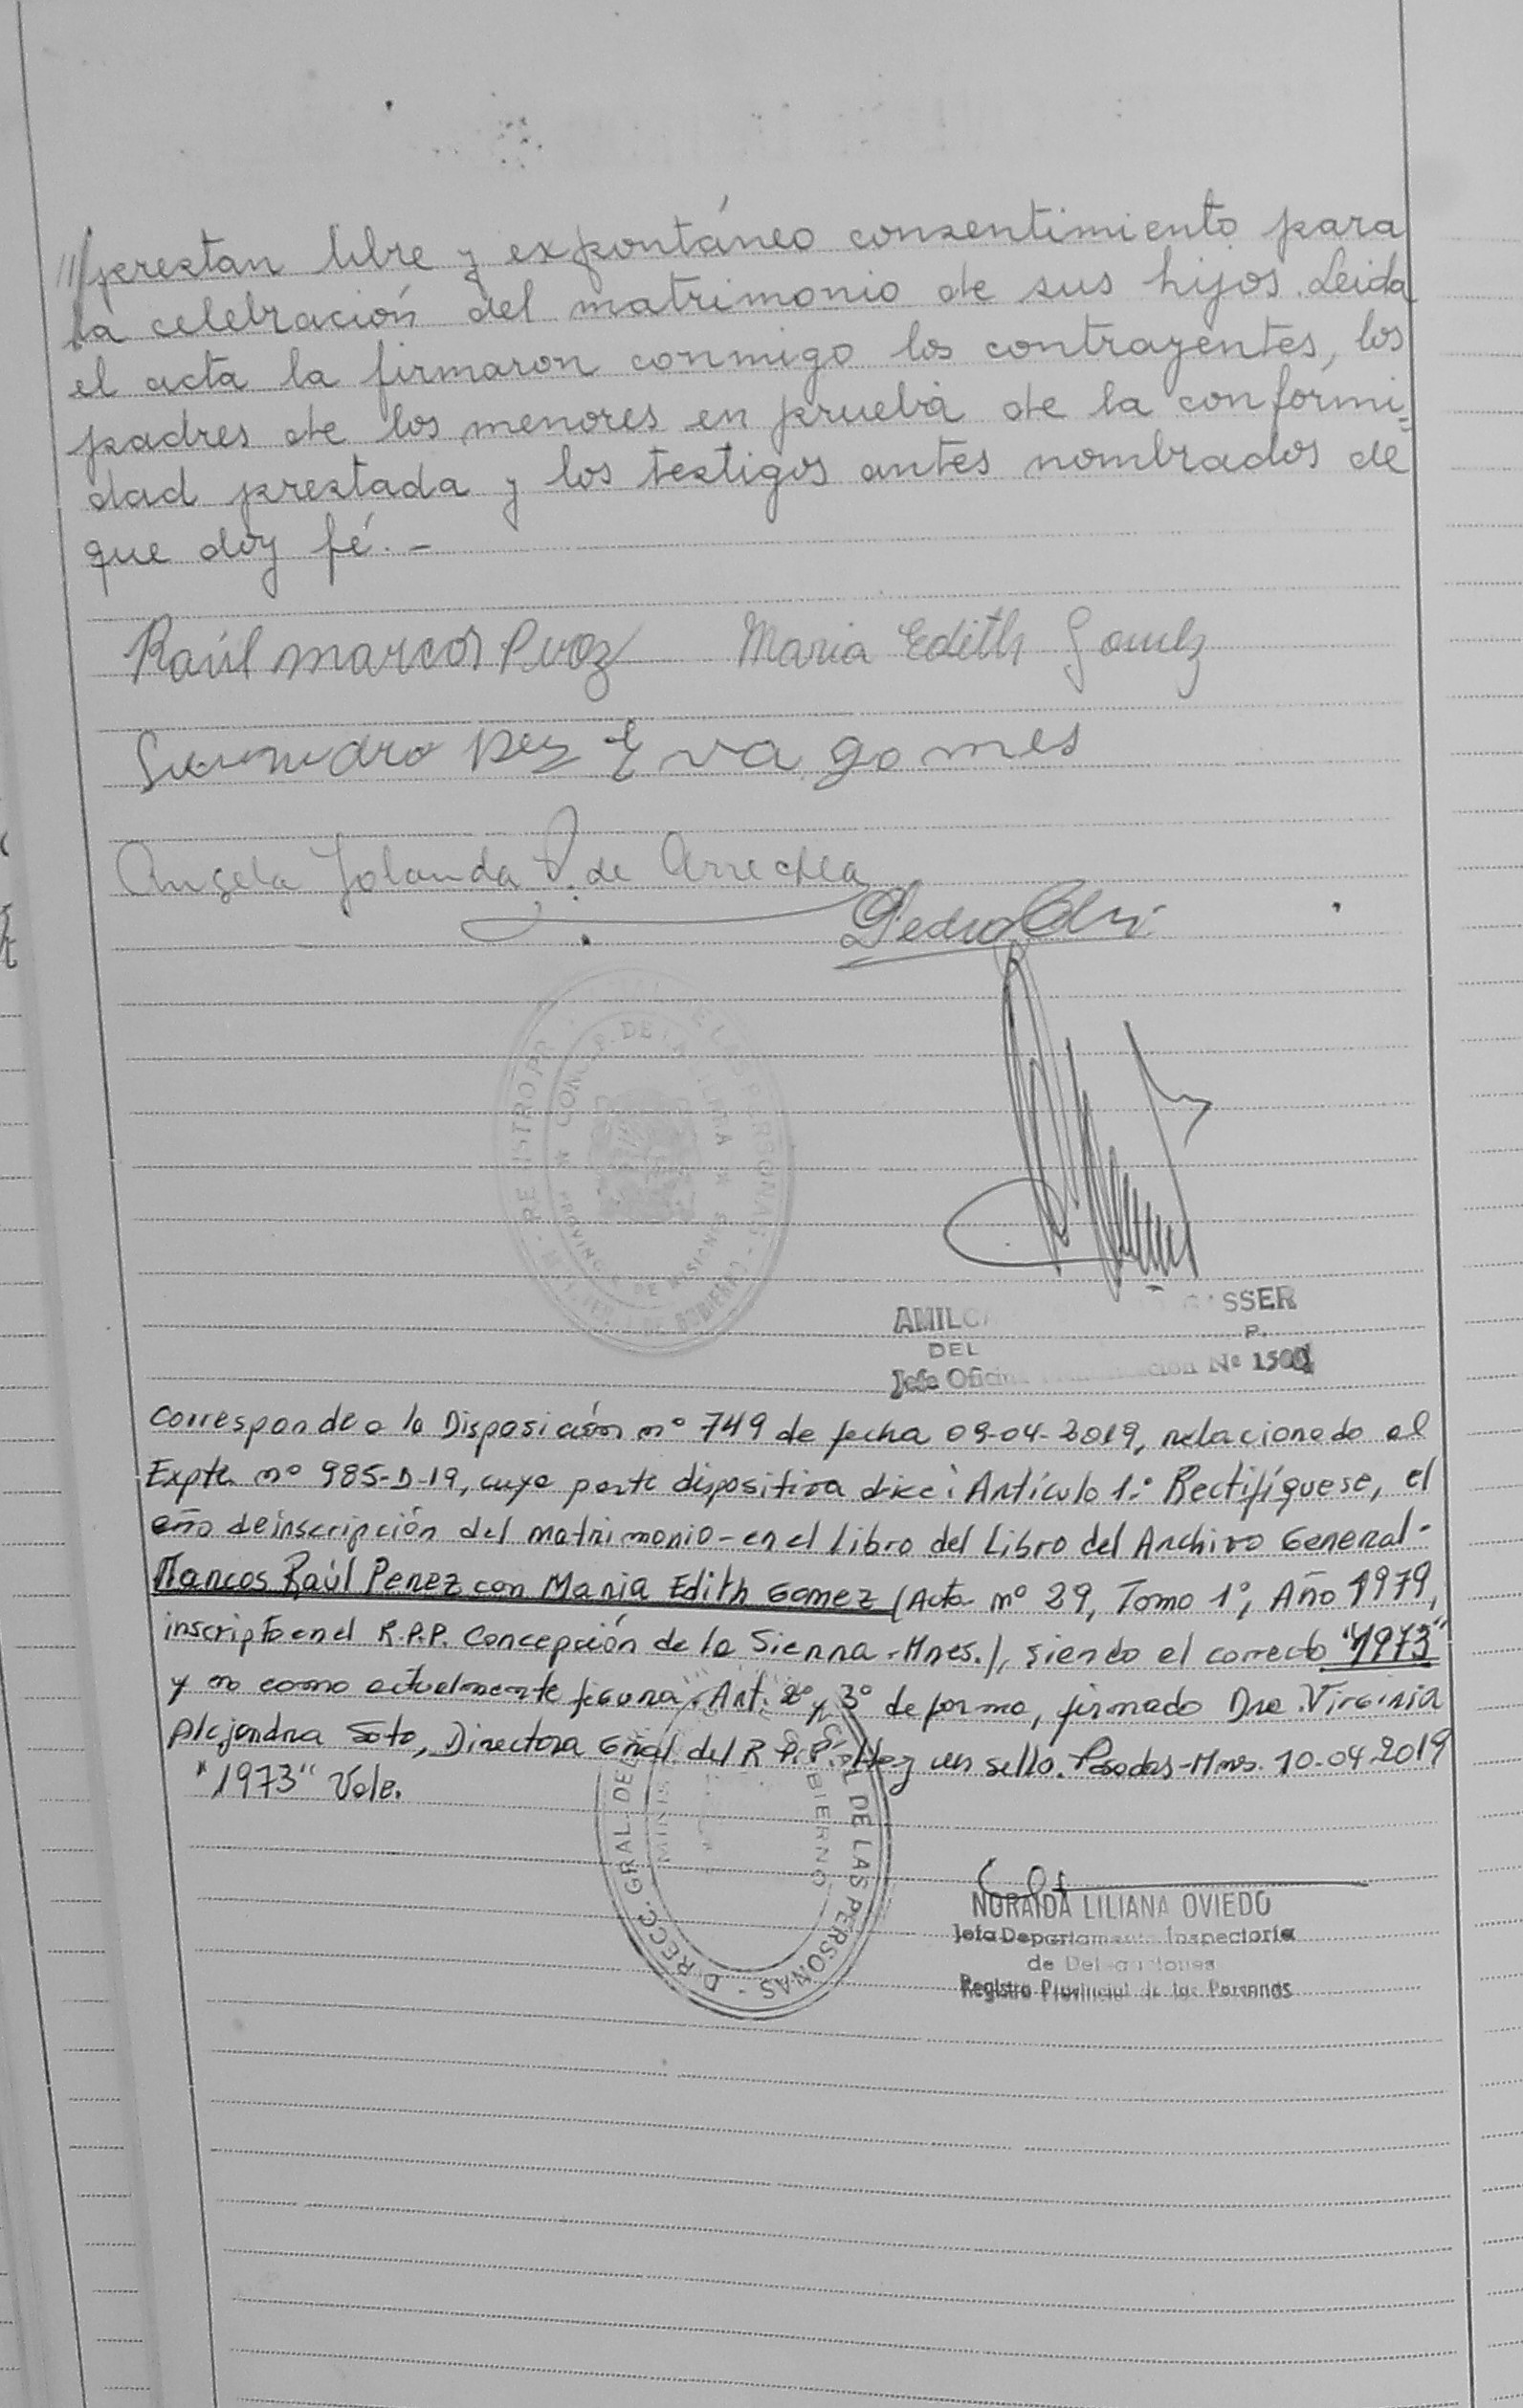 prestan libre y expontáneo consentimiento para
la celebración del matrimonio de sus hijos. Leida
el acta la firmaron conmigo los contrayentes, los
padres de los menores en prueba de la conformi=
dad prestada y los testigos antes nombrados de
que doy fé.-
Raúl Marcos Perez Maria Edith Gomez
Eva gomes
Angela Yolanda de Arrechea
Pedro
CONCEP. DE LA SIERRA
PROVINCIA DE MISIONES
DE LAS PERSONAS
AMILCA SSER
DEL P.
Jefe Oficina Nº 1500
Corresponde a la Disposición nº 749 de fecha 09-04-2019, relacionado al
Expte nº 985-D-19, cuya parte dispositiva dice: Artículo 1:º Rectifíquese, el
año de inscripción del matrimonio - en el Libro del Libro del Archivo General-
Marcos Raúl Perez con Maria Edith Gomez (Acta nº 29, Tomo 1º, Año 1979,
inscripto en el R.P.P. Concepción de la Sierra - Mnes.), siendo el correcto "1973"
y no como actualmente figura. Art. 2º y 3º de forma, firmado Dra. Virginia
Alejandra Soto, Directora Gral. del R.P.P. Hay un sello. Posadas-Mnes. 10-04-2019
"1973" Vale.
DIRECC. GRAL. DEL DE LAS PERSONAS
NORAIDA LILIANA OVIEDO
Jefa Departamento Inspectoría
de Delegaciones
Registro Provincial de las Personas